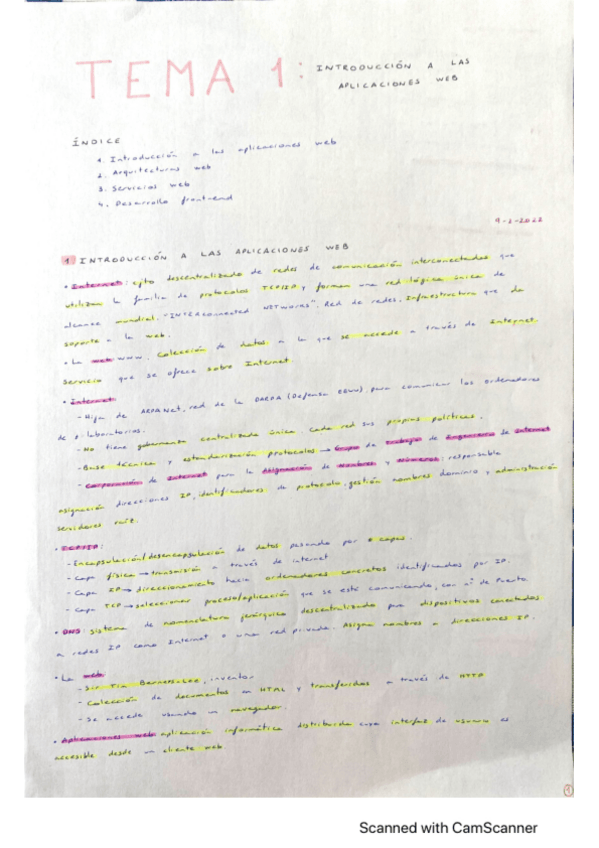 TEMA 1: INTRODUCCIÓN A LAS
APLICACIONES WEB
ÍNDICE
1. Introducción a las aplicaciones web
2. Arquitecturas web
3. Servicios web
4. Desarrollo front-end
9-2-2022
1 INTRODUCCIÓN A LAS APLICACIONES WEB
• Internet: cjto descentralizado de redes de comunicación interconectadas que
utilizan la familia de protocolos TCP/IP y forman una red lógica única de
alcance mundial. "INTERconnected NETworks". Red de redes. Infraestructura que da
soporte a la web.
• La web WWW. Colección de datos a la que se accede a través de Internet.
Servicio que se ofrece sobre Internet.
• Internet
- Hija de ARPANet, red de la DARPA (Defensa EEUU), para comunicar los ordenadores
de laboratorios.
- No tiene gobernanza centralizada única. Cada red sus propias políticas.
- Base técnica y estandarización protocolos → Grupo de Trabajo de Ingeniería de Internet
- Corporación de Internet para la Asignación de Nombres y Números: responsable
asignación direcciones IP, identificadores de protocolo, gestión nombres dominio y administración
servidores raíz.
• TCP/IP:
- Encapsulación/desencapsulación de datos pasando por capas.
- Capa física → transmisión a través de internet
- Capa IP → direccionamiento hacia ordenadores concretos identificados por IP.
- Capa TCP → seleccionar proceso/aplicación que se está comunicando, con nº de Puerto
• DNS: sistema de nomenclatura jerárquico descentralizado para dispositivos conectados
a redes IP como Internet o una red privada. Asigna nombres a direcciones IP.
• La web
- Sir Tim Berners-Lee, inventor
- Colección de documentos en HTML y transferidos a través de HTTP
- Se accede usando un navegador.
• Aplicaciones web aplicación informática distribuida cuya interfaz de usuario es
accesible desde un cliente web.
1
Scanned with CamScanner